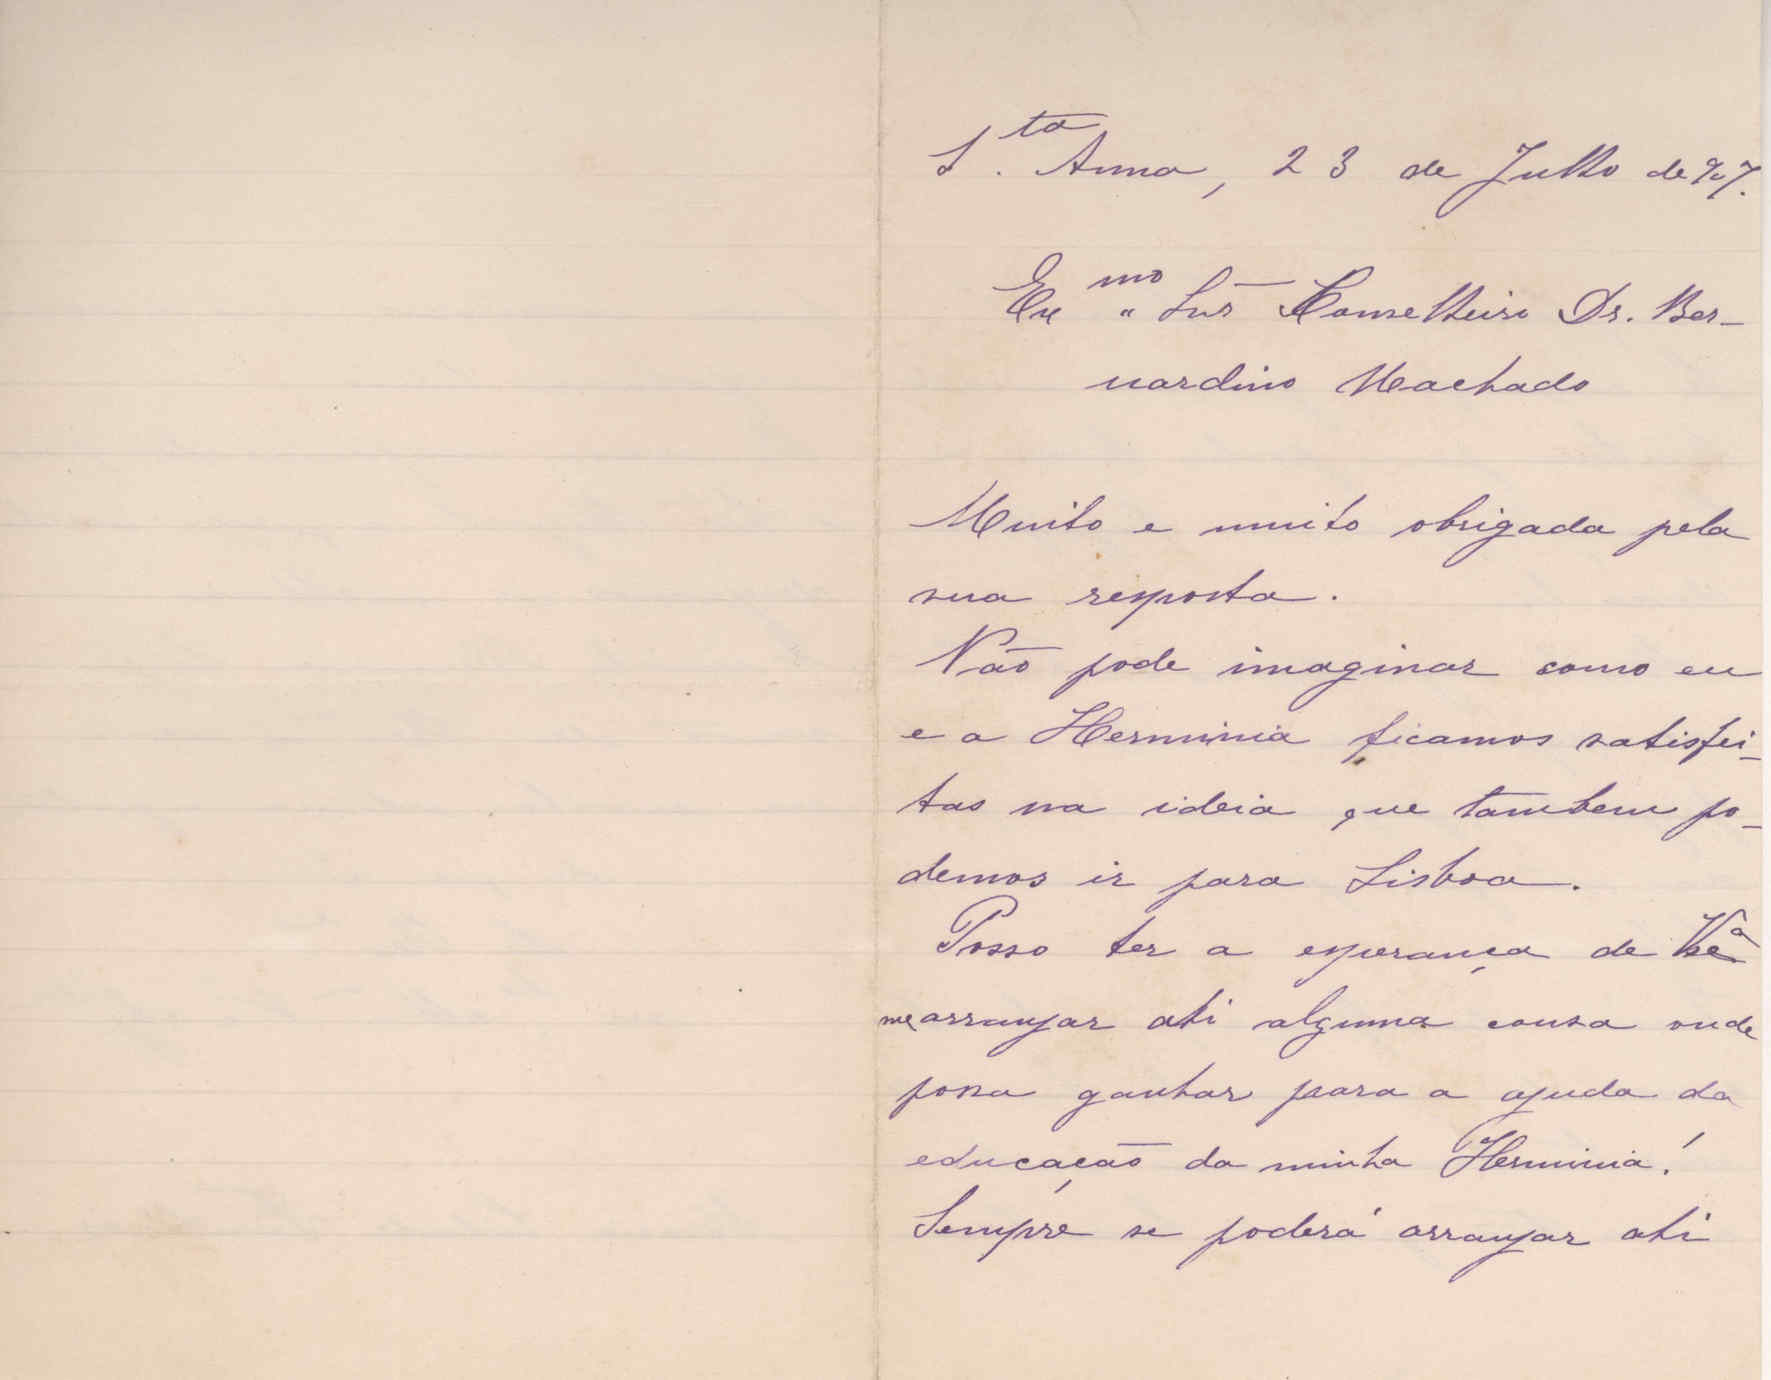 S.ta Anna, 23 de Julho de 907.
Exmo Snr Conselheiro Dr. Ber-
nardino Machado
Muito e muito obrigada pela
sua resposta.
Não pode imaginar como eu
e a Herminia ficamos satisfei-
tas na ideia que tambem po-
demos ir para Lisboa.
Posso ter a esperança de V. Ex.ª
me arranjar ahi alguma cousa onde
possa ganhar para a ajuda da
educação da minha Herminia!
Sempre se poderá arranjar ahi